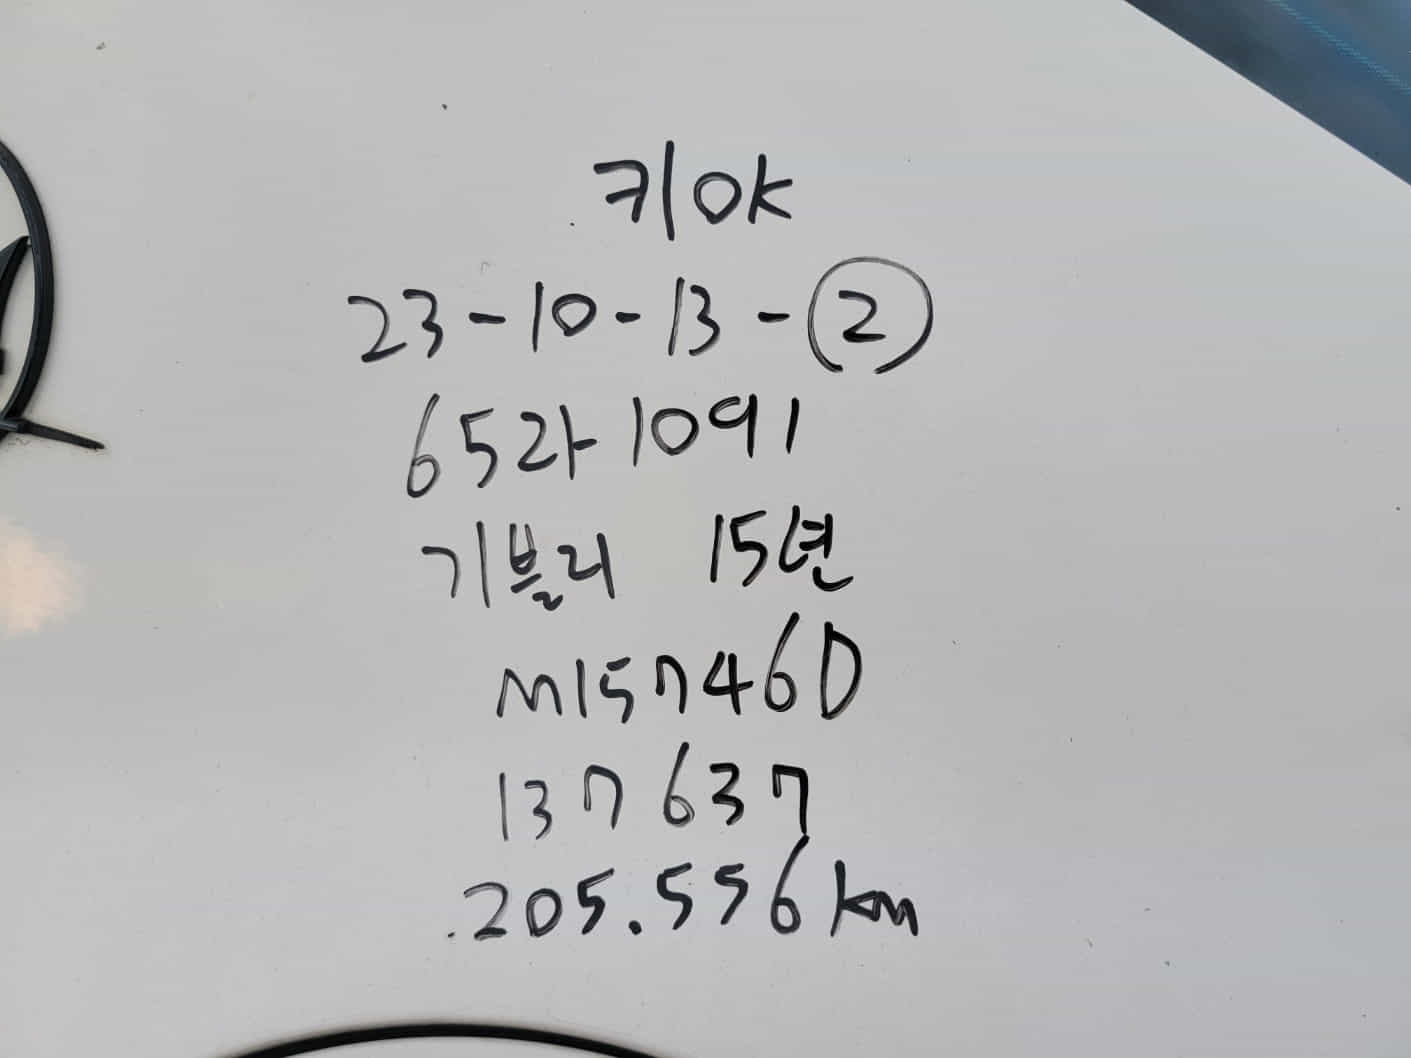 키OK
23-10-13-②
65라1091
기블리 15년
M15746D
137637
205.556km